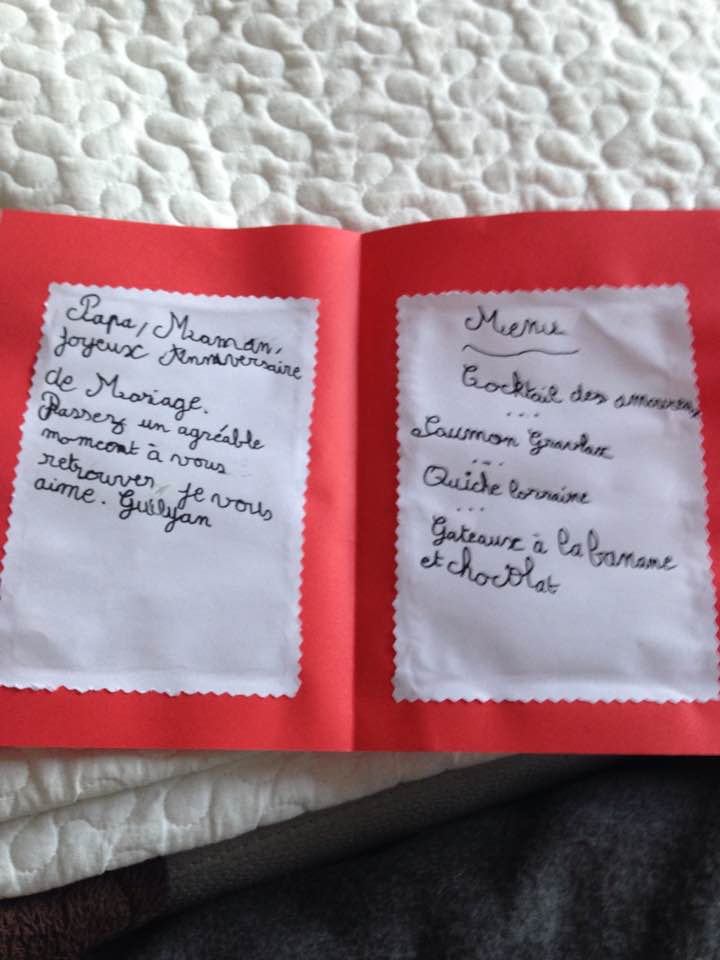 Papa, Maman,
Joyeux Anniversaire
de Mariage.
Passez un agréable
moment à vous
retrouver, je vous
aime. Guilyan
Menu
Cocktail des amoureux
...
Saumon Gravlax
...
Quiche lorraine
...
Gateaux à la banane
et chocolat